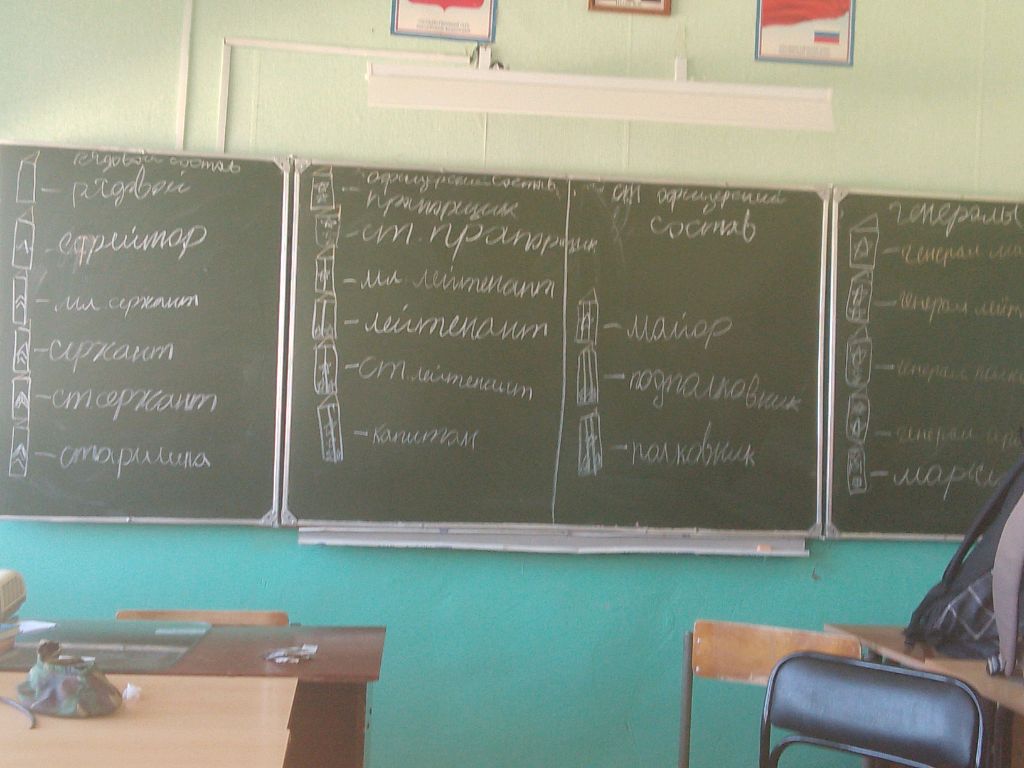 рядовой состав
рядовой
ефрейтор
мл. сержант
сержант
ст сержант
старшина
офицерский состав
Прапорщик
ст. прапорщик
мл лейтенант
лейтенант
ст лейтенант
капитан
ст офицерский
состав
майор
подполковник
полковник
генералы
генерал ма
генерал лейт
генерал полко
генерал
марш